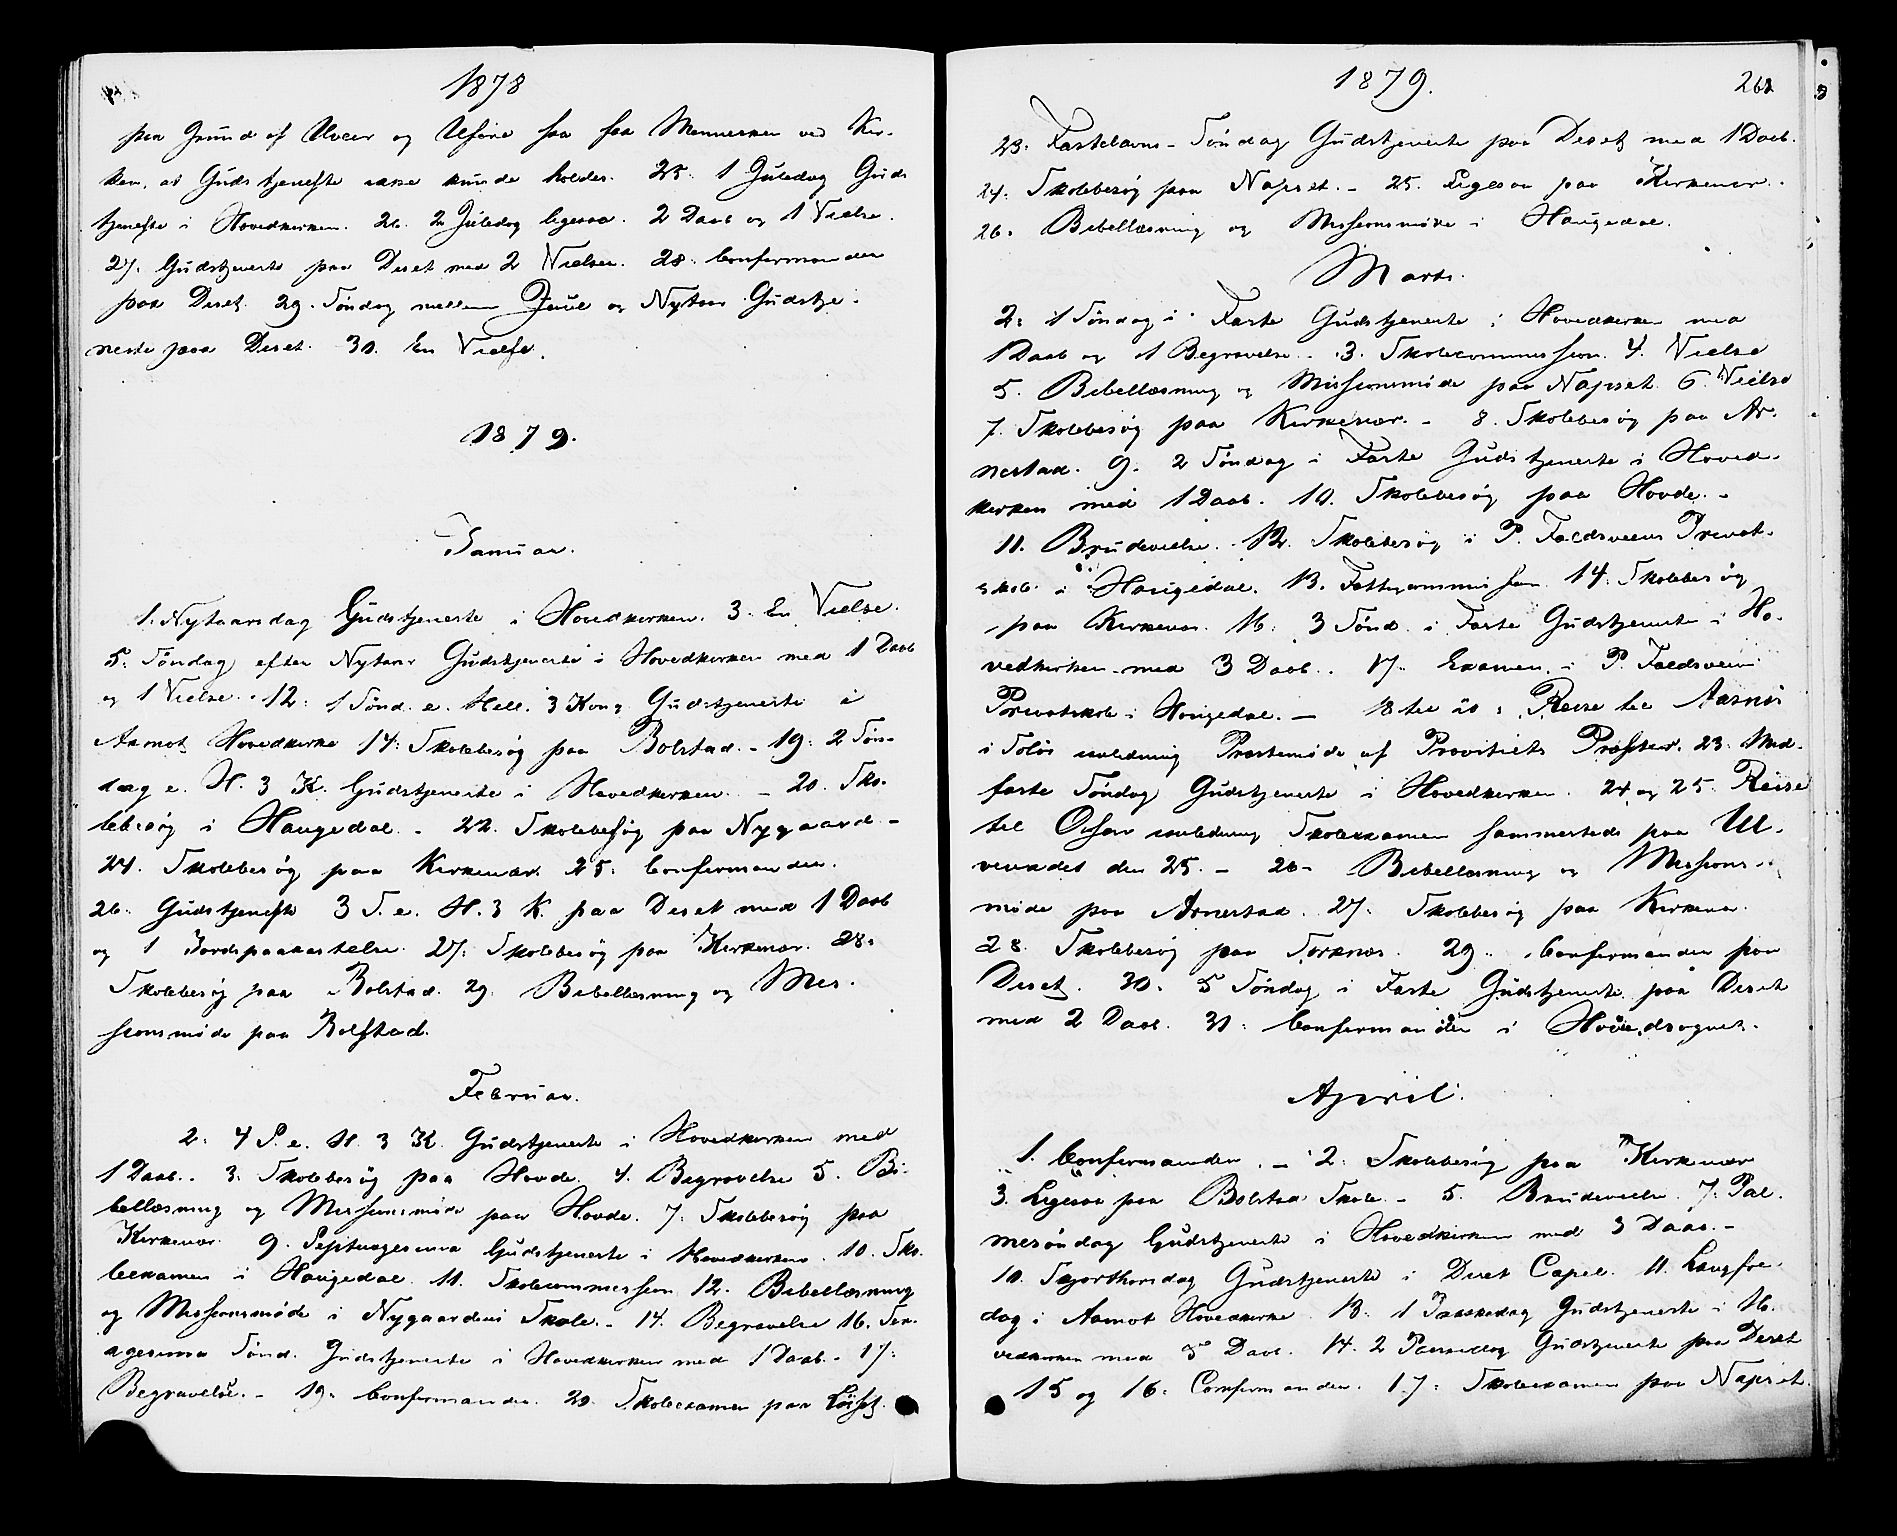 1878
paa Grund af Uveir og Uføre saa faa Mennesker ved Kir-
ken, at Gudstjeneste ikke kunde holdes. 25. 1 Juledag Guds
tjeneste i Hovedkirken. 26. 2 Juledag ligesaa. 2 Daab og 1 Vielse.
27. Gudstjeneste paa Deset med 2 Vielser. 28. Confirmander
paa Deset. 29. Søndag mellem Juul og Nytaar Gudstje-
neste paa Deset. 30. En Vielse.
1879.
Januar.
1. Nytaarsdag Gudstjeneste i Hovedkirken. 3. En Vielse.
5. Søndag efter Nytaar Gudstjeneste i Hovedkirken med 1 Daab
og 1 Vielse. 12. 1 Sønd. e. Hell. 3 Kong. Gudstjeneste i
Aamot Hovedkirke 14. Skolebesøg paa Bolstad. - 19. 2 Søn-
dag e. H. 3 K. Gudstjeneste i Hovedkirken. - 20. Sko-
lebesøg i Haugedal. - 22. Skolebesøg paa Nygaard -
24. Skolebesøg paa Kirkenær. 25. Confirmander.
26. Gudstjeneste 3 S. e. H. 3 K. paa Deset med 1 Daab
og 1 Jordspaakastelse. 27. Skolebesøg paa Kirkenær. 28.
Skolebesøg paa Bolstad. 29. Bibellæsning og Mis-
sionsmøde paa Bolstad.
Februar.
2. 4 S. e. H. 3 K. Gudstjeneste i Hovedkirken med
1 Daab. 3. Skolebesøg paa Hovde. 4. Begravelse 5. Bi-
bellæsning og Missionsmøde paa Hovde. 7. Skolebesøg paa
Kirkenær. 9. Septuagesima Gudstjeneste i Hovedkirken. 10. Sko-
leexamen i Haugedal. 11. Skolecommission 12. Bibellæsning
og Missionsmøde i Nygaardens Skole. - 14. Begravelse 16. Sex-
agesima Sønd. Gudstjeneste i Hovedkirken med 1 Daab. - 17.
Begravelse. - 19. Confirmander. 20. Skoleexamen paa Løset.
1879.
23. Fastelavns-Søndag Gudstjeneste paa Deset med 1 Daab.
24. Skolebesøg paa Næpset. - 25. Ligesaa paa Kirkenær.
26. Bibellæsning og Missionsmøde i Haugedal.
Marts.
2. 1 Søndag i Faste Gudstjeneste i Hovedkirken med
1 Daab og 1 Begravelse. 3. Skolecommission. 4. Vielse
5. Bibellæsning og Missionsmøde paa Næpset. 6. Vielse
7. Skolebesøg paa Kirkenær. - 8. Skolebesøg paa Ar-
nestad. 9. 2 Søndag i Faste Gudstjeneste i Hoved-
kirken med 1 Daab. 10. Skolebesøg paa Hovde. -
11. Brudevielse. 12. Skolebesøg i P. Faldsveens Privat-
skole i Haugedal. 13. Fattigcommission. 14. Skolebesøg
paa Kirkenær. 16. 3 Sønd. i Faste Gudstjeneste i Ho-
vedkirken med 3 Daab. 17. Examen i P. Faldsveens
Privatskole i Haugedal. - 18 til 20. Reise til Aasnes
i Solør anledning Præstemøde af Provstiets Præster. 23. Mid-
faste Søndag Gudstjeneste i Hovedkirken. 24 og 25. Reise
til Osen anledning Skoleexamen sammesteds paa Ul-
vevadet den 25. - 26. Bibellæsning og Missions-
møde paa Arnestad. 27. Skolebesøg paa Kirkenær.
28. Skolebesøg paa Sorknes. 29. Confirmander paa
Deset. 30. 5 Søndag i Faste Gudstjeneste paa Deset
med 2 Daab. 31. Confirmander i Hovedsognet.
April.
1. Confirmander. - 2. Skolebesøg paa Kirkenær
3. Ligesaa paa Bolstad Skole. - 5. Brudevielse. 7. Pal-
mesøndag Gudstjeneste i Hovedkirken med 3 Daab. -
10. Skjærthorsdag Gudstjeneste i Deset Capel. 11. Langfre-
dag i Aamot Hovedkirke. 13. 1 Paaskedag Gudstjeneste i Ho-
vedkirken med 5 Daab. 14. 2 Paaskedag Gudstjeneste paa Deset
15 og 16. Confirmander. 17. Skoleexamen paa Næpset.